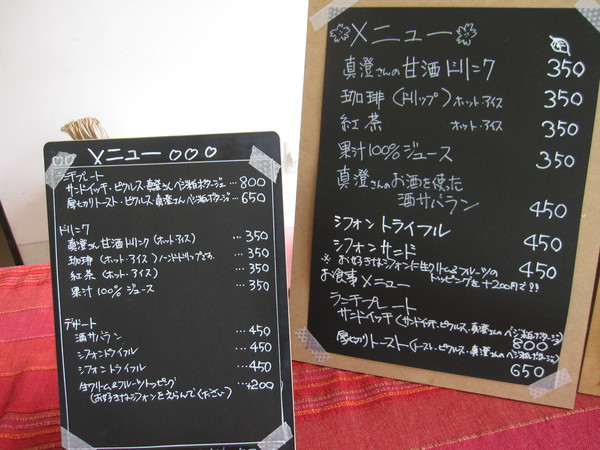 メニュー
ランチプレート
サンドイッチ・ピクルス・真澄さんベジ粕ポタージュ…800
厚切りトースト・ピクルス・真澄さんベジ粕ポタージュ…650
ドリンク
真澄さん甘酒ドリンク(ホット・アイス) …350
珈琲(ホット・アイス)ハンドドリップです。 …350
紅茶(ホット・アイス) …350
果汁100%ジュース …350
デザート
酒サバラン …450
シフォントライフル …450
シフォントライフル …450
生クリーム&フルーツトッピング …+200
(お好きなシフォンをえらんでください)
メニュー
真澄さんの甘酒ドリンク 350
珈琲(ドリップ)ホット・アイス 350
紅茶 ホット・アイス 350
果汁100%ジュース 350
真澄さんのお酒を使った
酒サバラン 450
シフォントライフル
シフォンサンド 450
※お好きなシフォンに生クリームとフルーツの
トッピングを+200円で!!
お食事メニュー
ランチプレート
サンドイッチ(サンドイッチ・ピクルス・真澄さんのベジ粕ポタージュ)
800
厚切りトースト(トースト・ピクルス・真澄さんのベジ粕ポタージュ)
650